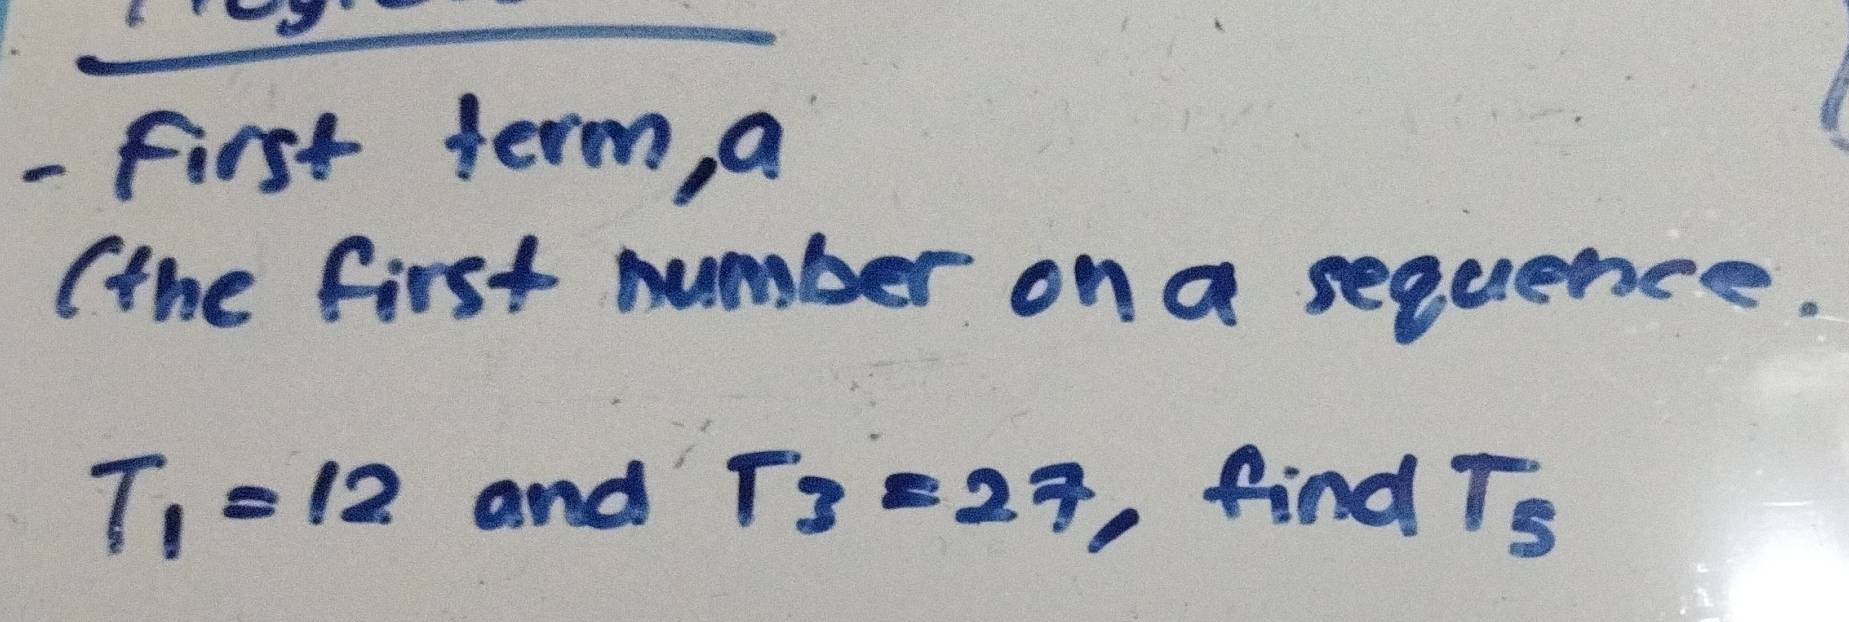 - first term, a
(the first number on a sequence.
T₁ = 12 and T₃ = 27, find T₅